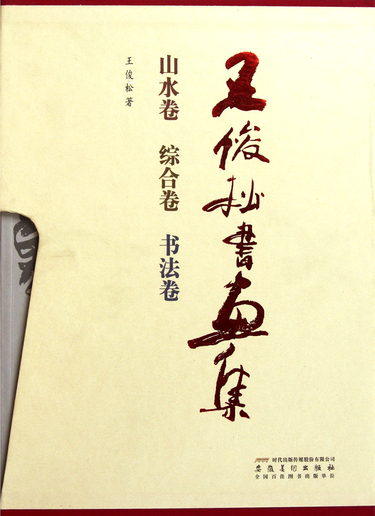 王俊松书画集
山水卷 综合卷 书法卷
王俊松著
时代出版传媒股份有限公司
安徽美术出版社
全国百佳图书出版单位